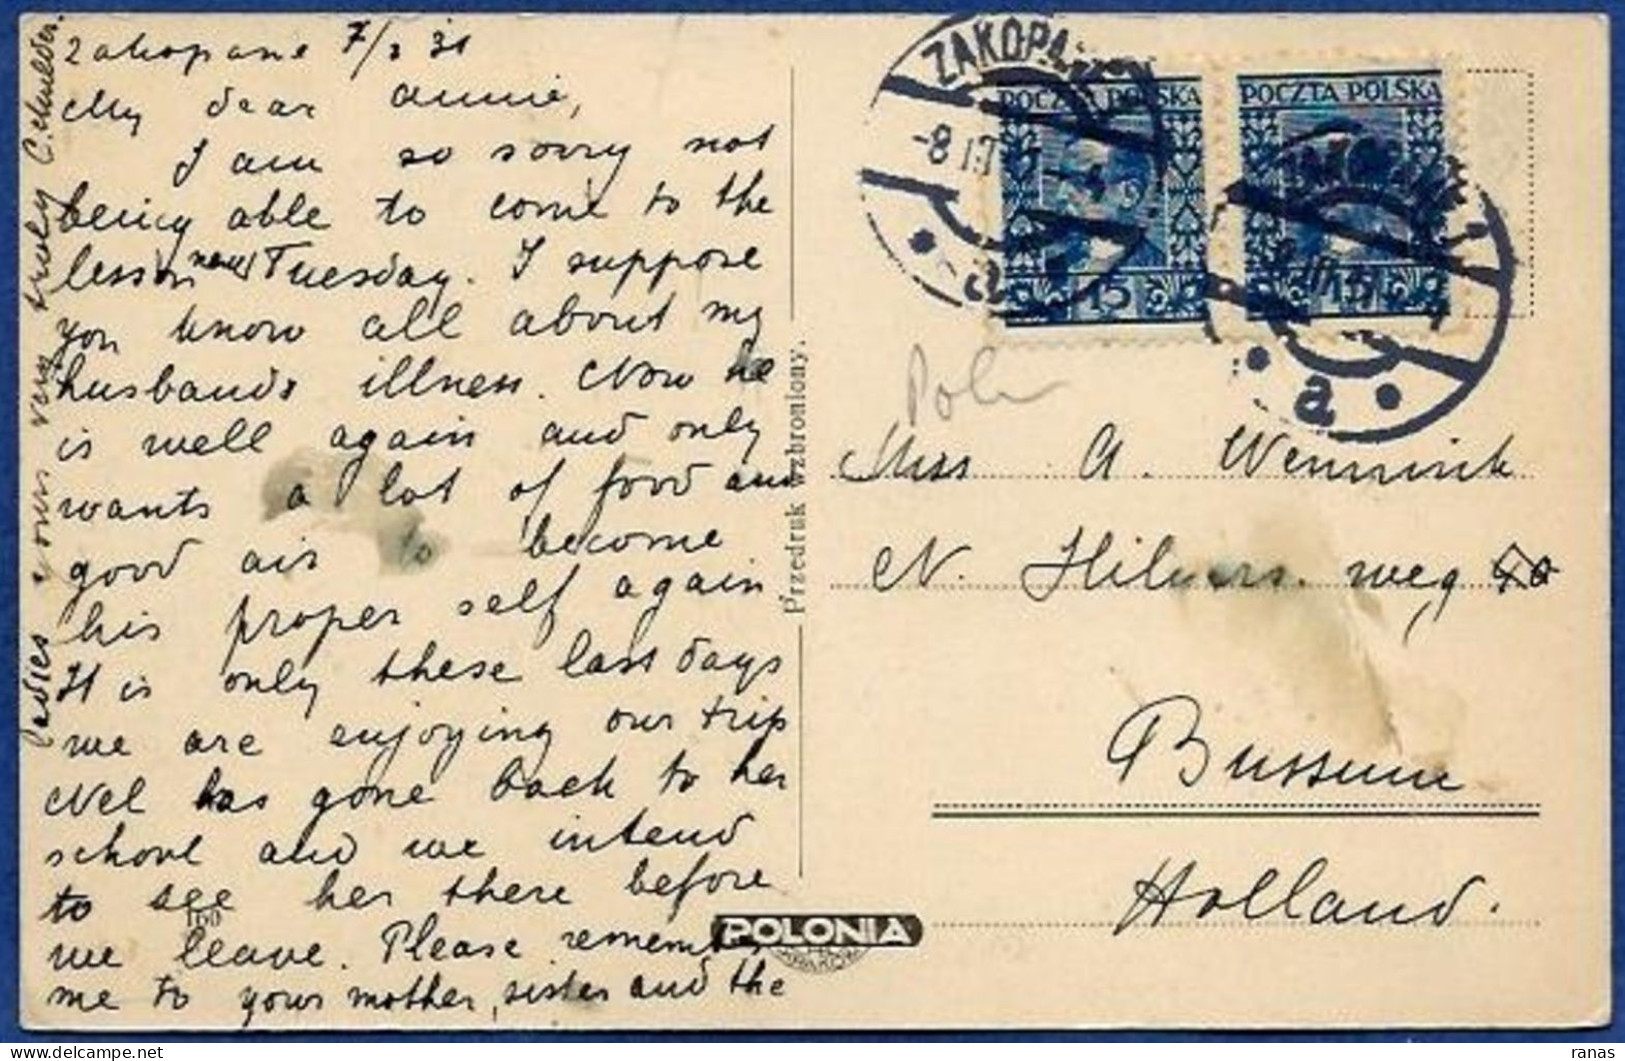 Zakopane 7/3 31
My dear Annie,
I am so sorry not
being able to come to the
lesson new Tuesday. I suppose
you know all about my
husbands illness. Now he
is well again and only
wants a lot of food and
good air to become
his proper self again
It is only these last days
we are enjoying our trip
Nel has gone back to her
school and we intend
to see her there before
we leave. Please remember
me to your mother, sister and the
ladies yours very truly C. Mulder.
160
Przedruk wzbroniony.
POLONIA
KRAKÓW
ZAKOPANE
-8 III 31
a
POCZTA POLSKA
15
POCZTA POLSKA
15
a
Miss A. Wennink
N. Hilvers. weg
Bussum
Holland.
ranas